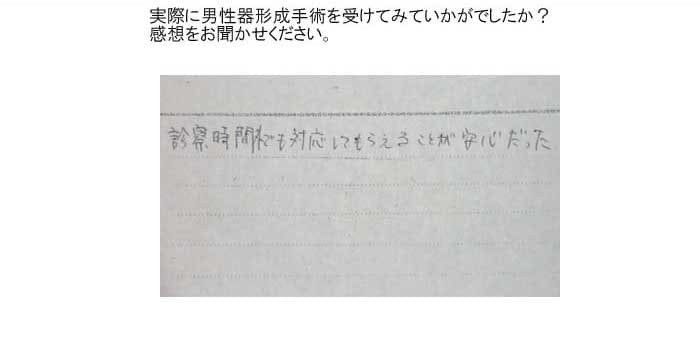 実際に男性器形成手術を受けてみていかがでしたか？
感想をお聞かせください。
診察時間外でも対応してもらえることが安心だった